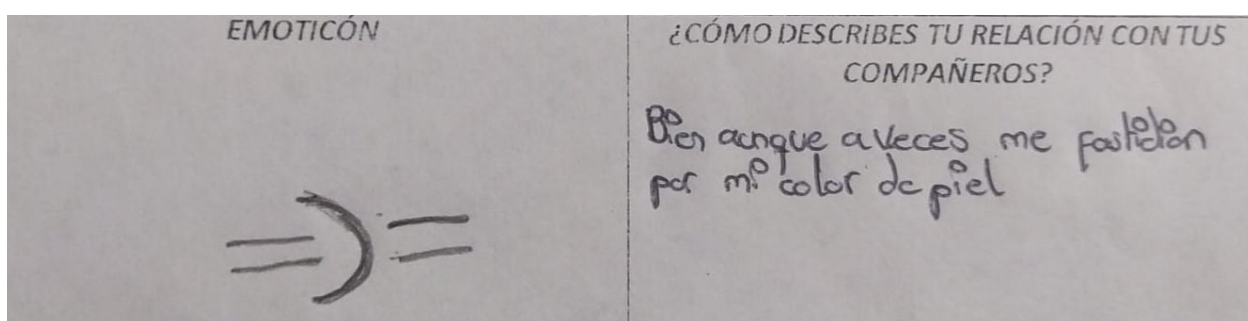 EMOTICÓN
¿CÓMO DESCRIBES TU RELACIÓN CON TUS
COMPAÑEROS?
Bien aunque a veces me fastidian
por mi color de piel
=)=